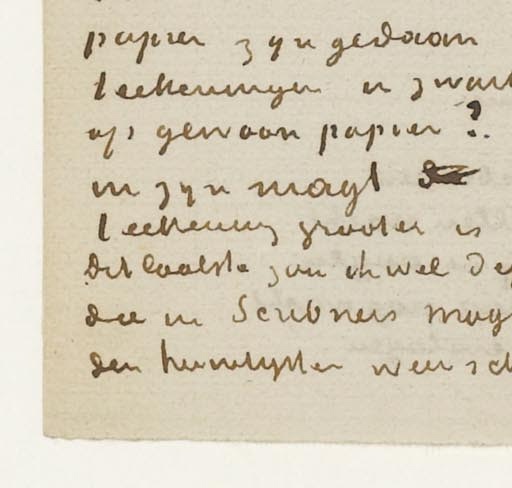 papier zyn gedaan
teekeningen in zwart
op gewoon papier ?
in zyn magt
teekening grooter is
Dit laatste zou ik wel de
die in Scribners mag
den houtsnyder wensch